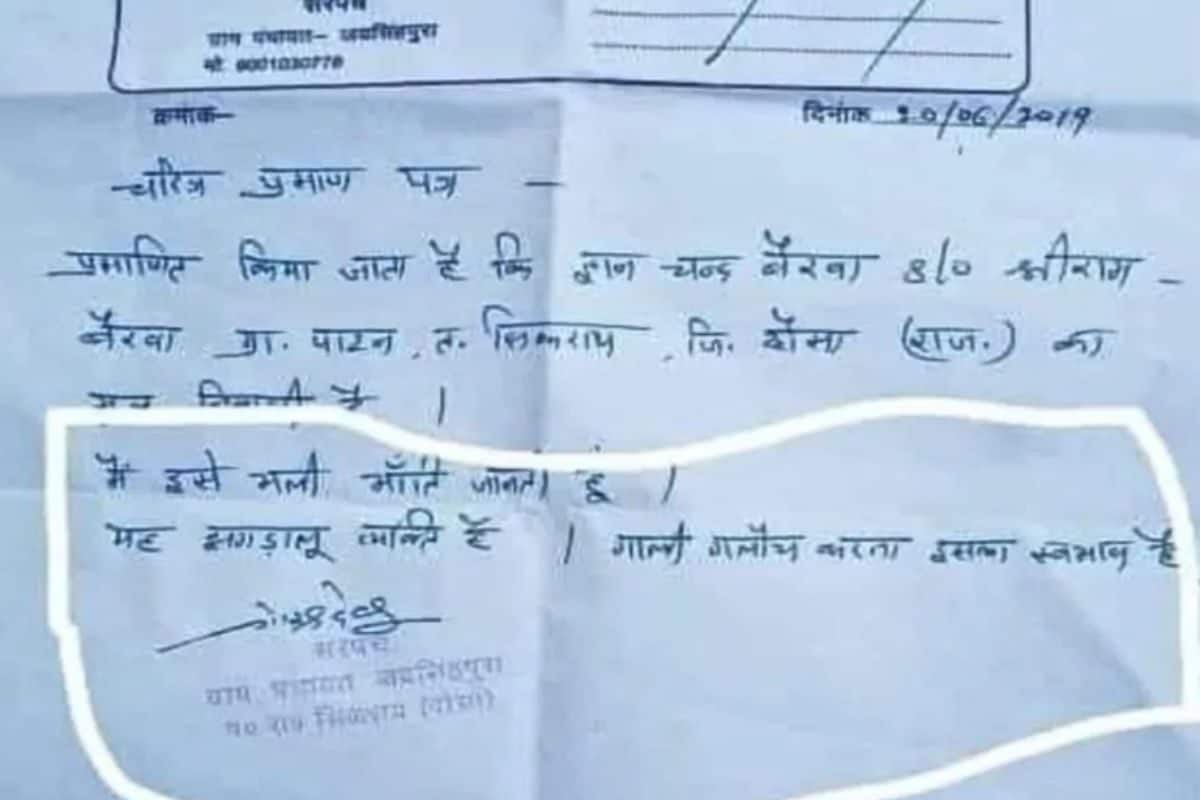 सरपंच
ग्राम पंचायत– जयसिंहपुरा
मो. 9001030778
क्रमांक–
दिनांक 20/06/2019
चरित्र प्रमाण पत्र –
प्रमाणित किया जाता है कि ज्ञान चन्द बैरवा S/o श्रीराम –
बैरवा ग्रा. पाटन, त. सिकराय, जि. दौसा (राज.) का
मूल निवासी है ।
मैं इसे भली भाँति जानती हूं ।
यह झगड़ालू व्यक्ति है । गाली गलौच करना इसका स्वभाव है
सरपंच
ग्राम पंचायत जयसिंहपुरा
पं० स० सिकराय (दौसा)